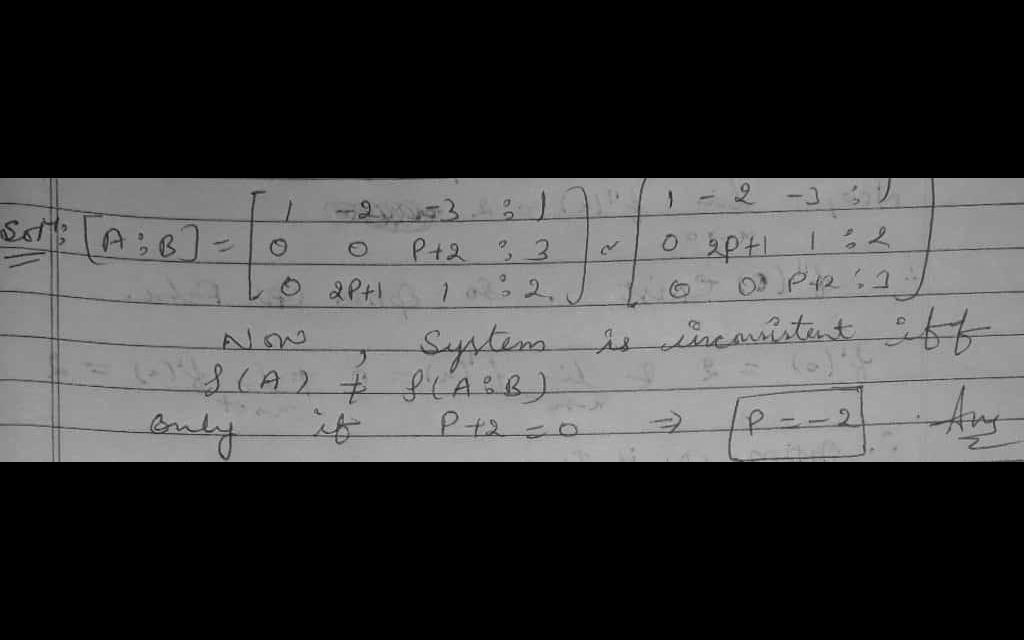 Solⁿ: [A : B] = [ 1 -2 -3 : 1 ] ~ [ 1 -2 -3 : 1 ]
[ 0 0 P+2 : 3 ] [ 0 2P+1 1 : 2 ]
[ 0 2P+1 1 : 2 ] [ 0 0 P+2 : 3 ]
Now, System is inconsistent iff
ρ(A) ≠ ρ(A:B)
only if P+2 = 0 ⇒ P = -2 Ans